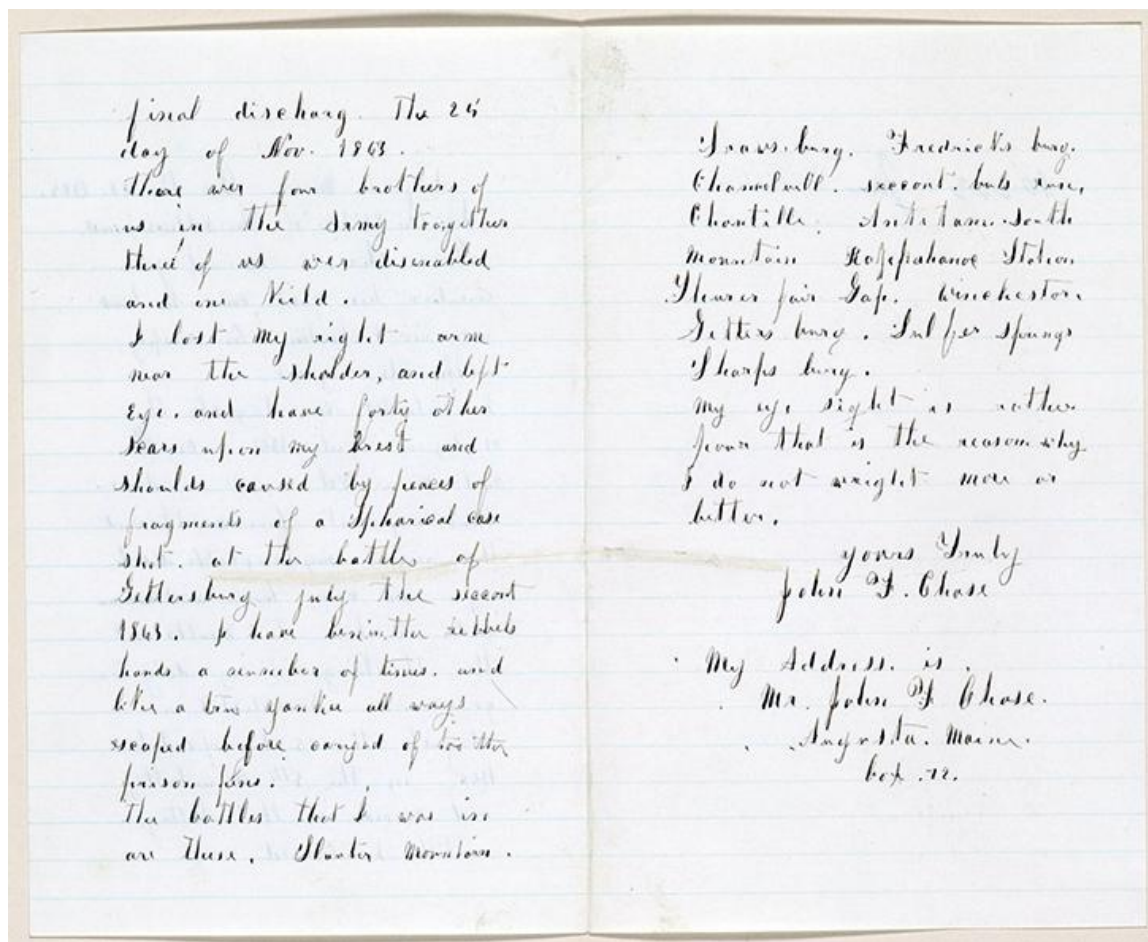 final discharg. The 25
day of Nov. 1863.
there wer four brothers of
us in the Army toogether
three of us wer diseabled
and one Kield.
I lost my right arm
near the sholder, and left
Eye. and have forty other
scars upon my brest and
shoulds caused by peaces of
fragments of a Spharical case
shot. at the battle of
Gettersburg july the secont
1863. I have bein in the rebbels
hands a number of times. and
like a true yankee all ways
escaped before carried of too the
prison pens.
The battles that I was in
are these. Slauter Mountain.
Fredricks burg.
Chanselvill. secont buls run,
Chantille. Antetam. South
Mountain Rappahanoc Station
Thourer fair Gap. Winchestor.
Getters burg. Sulfer Springs
Sharps burg.
My eye sight is rather
pour that is the reason why
I do not wright more or
better.
yours Truly
John F. Chase
My Address. is.
Mr. John F. Chase.
Augusta. Maine.
box. 72.